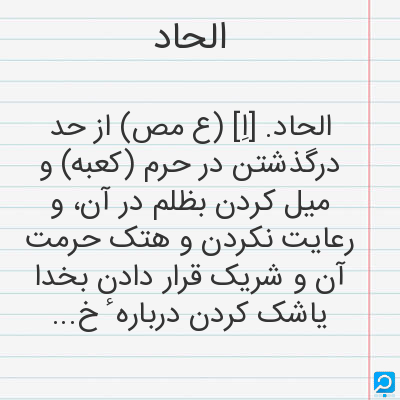 الحاد
الحاد. [اِ] (ع مص) از حد
درگذشتن در حرم (کعبه) و
میل کردن بظلم در آن، و
رعایت نکردن و هتک حرمت
آن و شریک قرار دادن بخدا
یاشک کردن درباره ٔ خ...